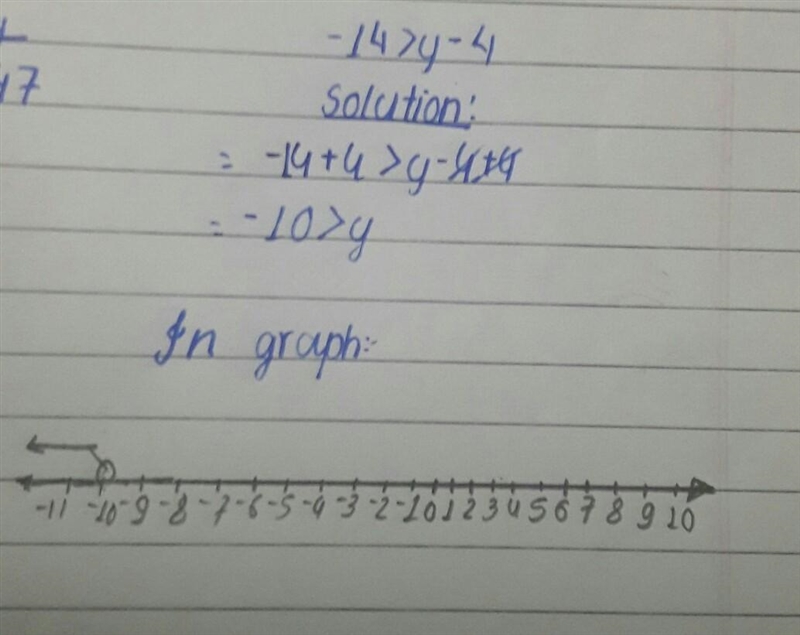 -14>y-4
17
Solution:
= -14+4>y-4+4
= -10>y
In graph:-
-11 -10 -9 -8 -7 -6 -5 -4 -3 -2 -1 0 1 2 3 4 5 6 7 8 9 10